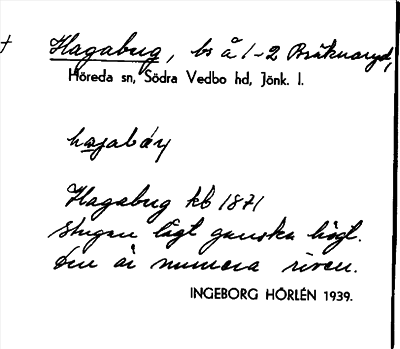 † Hagabug, bs å 1-2 Bräknaryd,
Höreda sn, Södra Vedbo hd, Jönk. l.
Hagabug kb 1871
stugan lågt ganska högt.
den är numera riven.
INGEBORG HÖRLÉN 1939.